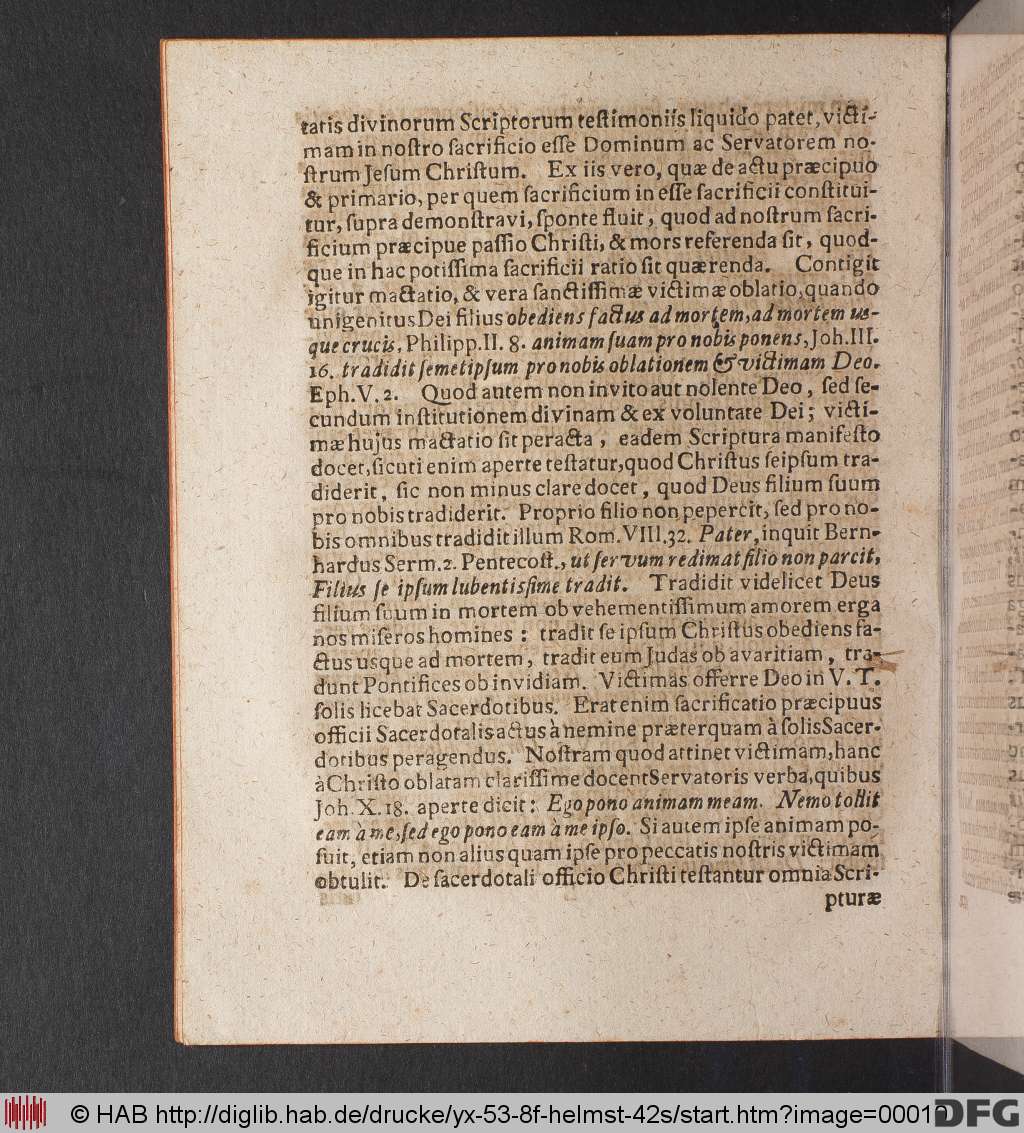 tatis divinorum Scriptorum teſtimoniis liquido patet, victi-
mam in noſtro ſacrificio eſſe Dominum ac Servatorem no-
ſtrum Jeſum Chriſtum. Ex iis vero, quæ de actu præcipuo
& primario, per quem ſacrificium in eſſe ſacrificii conſtitui-
tur, ſupra demonſtravi, ſponte fluit, quod ad noſtrum ſacri-
ficium præcipue paſſio Chriſti, & mors referenda ſit, quod-
que in hac potiſſima ſacrificii ratio ſit quærenda. Contigit
igitur mactatio, & vera ſanctiſſimæ victimæ oblatio, quando
unigenitus Dei filius obediens factus ad mortem, ad mortem us-
que crucis, Philipp. II. 8. animam ſuam pro nobis ponens, Joh. III.
16. tradidit ſemetipſum pro nobis oblationem & victimam Deo.
Eph. V. 2. Quod autem non invito aut nolente Deo, ſed ſe-
cundum inſtitutionem divinam & ex voluntate Dei; victi-
mæ hujus mactatio ſit peracta, eadem Scriptura manifeſto
docet, ſicuti enim aperte teſtatur, quod Chriſtus ſeipſum tra-
diderit, ſic non minus clare docet, quod Deus filium ſuum
pro nobis tradiderit. Proprio filio non pepercit, ſed pro no-
bis omnibus tradidit illum Rom. VIII. 32. Pater, inquit Bern-
hardus Serm. 2. Pentecoſt., ut ſervum redimat filio non parcit,
Filius ſe ipſum lubentisſime tradit. Tradidit videlicet Deus
filium ſuum in mortem ob vehementiſſimum amorem erga
nos miſeros homines: tradit ſe ipſum Chriſtus obediens fa-
ctus usque ad mortem, tradit eum Judas ob avaritiam, tra-
dunt Pontifices ob invidiam. Victimas offerre Deo in V. T.
ſolis licebat Sacerdotibus. Erat enim ſacrificatio præcipuus
officii Sacerdotalis actus à nemine præterquam à ſolis Sacer-
dotibus peragendus. Noſtram quod attinet victimam, hanc
à Chriſto oblatam clariſſime docent Servatoris verba, quibus
Joh. X. 18. aperte dicit: Ego pono animam meam. Nemo tollit
eam à me, ſed ego pono eam à me ipſo. Si autem ipſe animam po-
ſuit, etiam non alius quam ipſe pro peccatis noſtris victimam
obtulit. De ſacerdotali officio Chriſti teſtantur omnia Scri-
pturæ
© HAB http://diglib.hab.de/drucke/yx-53-8f-helmst-42s/start.htm?image=00010
DFG